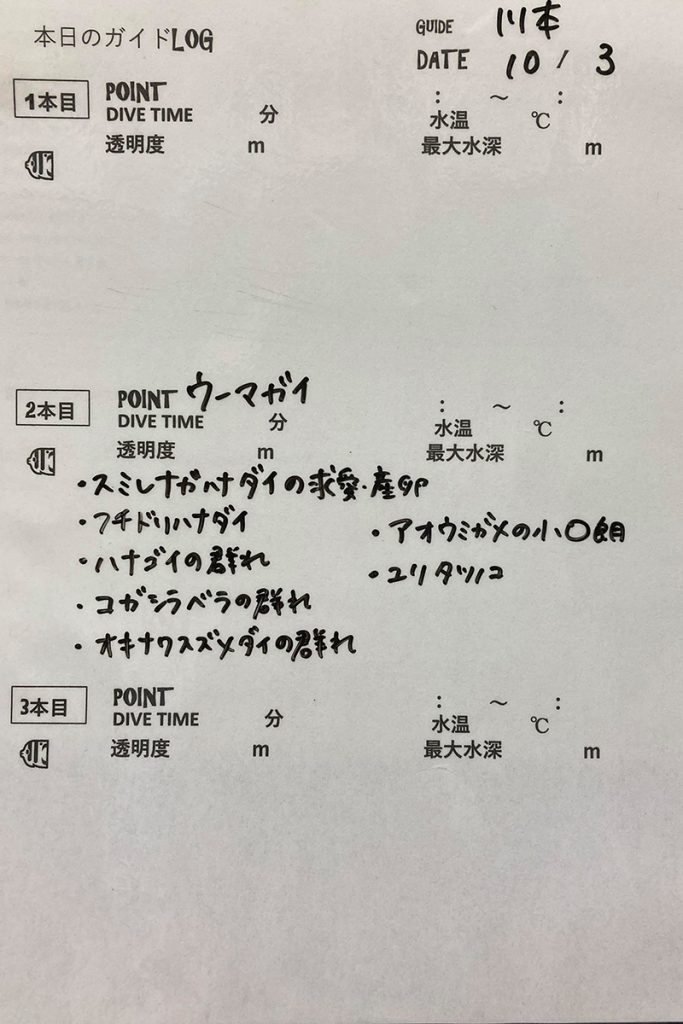 本日のガイドLOG
GUIDE 川本
DATE 10 / 3
1本目 POINT
DIVE TIME 分 : ～ :
水温 ℃
透明度 m 最大水深 m
2本目 POINT ウーマガイ
DIVE TIME 分 : ～ :
水温 ℃
透明度 m 最大水深 m
・スミレナガハナダイの求愛・産卵
・フチドリハナダイ
・ハナゴイの群れ
・コガシラベラの群れ
・オキナワスズメダイの群れ
・アオウミガメの小〇朗
・ユリタツノコ
3本目 POINT
DIVE TIME 分 : ～ :
水温 ℃
透明度 m 最大水深 m